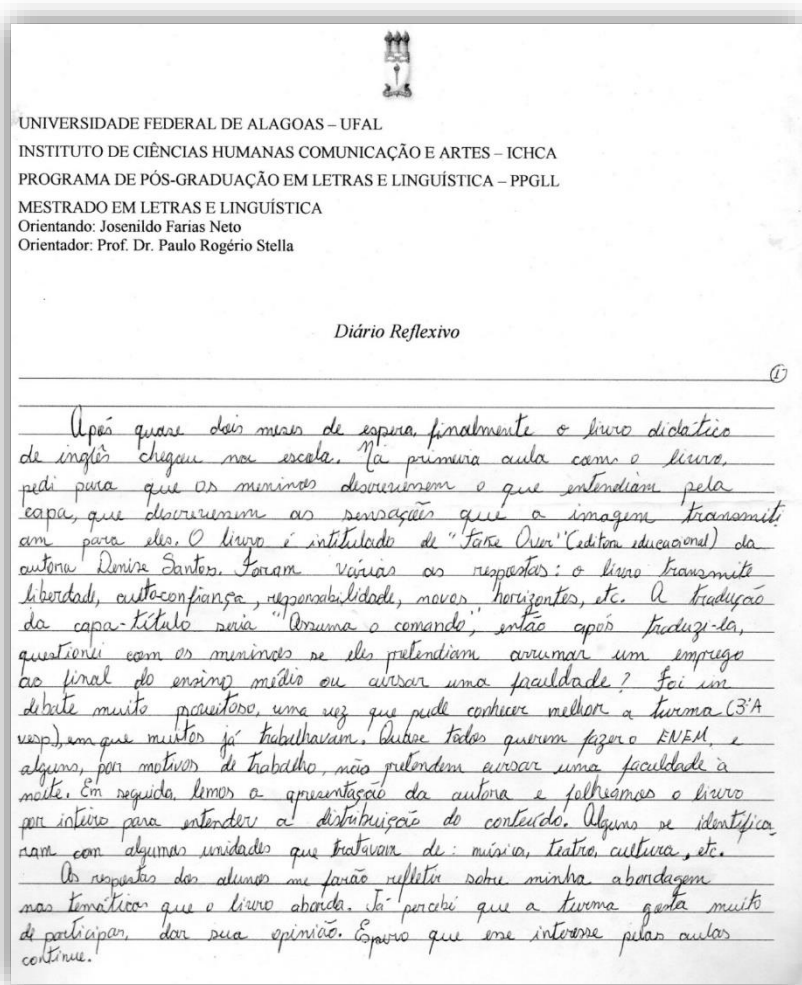 UNIVERSIDADE FEDERAL DE ALAGOAS – UFAL
INSTITUTO DE CIÊNCIAS HUMANAS COMUNICAÇÃO E ARTES – ICHCA
PROGRAMA DE PÓS-GRADUAÇÃO EM LETRAS E LINGUÍSTICA – PPGLL
MESTRADO EM LETRAS E LINGUÍSTICA
Orientando: Josenildo Farias Neto
Orientador: Prof. Dr. Paulo Rogério Stella
Diário Reflexivo
①
Após quase dois meses de espera, finalmente o livro didático
de inglês chegou na escola. Na primeira aula com o livro,
pedi para que os meninos descrevessem o que entendiam pela
capa, que descrevessem as sensações que a imagem transmiti
am para eles. O livro é intitulado de "Take Over" (editora educacional) da
autora Denise Santos. Foram várias as respostas: o livro transmite
liberdade, autoconfiança, responsabilidade, novos horizontes, etc. A tradução
da capa-título seria "Assuma o comando", então após traduzi-la,
questionei com os meninos se eles pretendiam arrumar um emprego
ao final do ensino médio ou cursar uma faculdade? Foi um
debate muito proveitoso, uma vez que pude conhecer melhor a turma (3ºA
vesp), em que muitos já trabalhavam. Quase todos querem fazer o ENEM, e
alguns, por motivos de trabalho, não pretendem cursar uma faculdade à
noite. Em seguida, lemos a apresentação da autora e folheamos o livro
por inteiro para entender a distribuição do conteúdo. Alguns se identifica
ram com algumas unidades que tratavam de: música, teatro, cultura, etc.
As respostas dos alunos me farão refletir sobre minha abordagem
nas temáticas que o livro aborda. Já percebi que a turma gosta muito
de participar, dar sua opinião. Espero que esse interesse pelas aulas
continue.